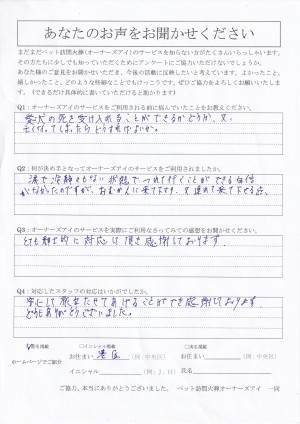 あなたのお声をお聞かせください
まだまだペット訪問火葬(オーナーズアイ)のサービスを知らない方がたくさんいらっしゃいます。
その方たちに少しでも知っていただくためにアンケートにご協力いただけないでしょうか。
あなた様のご意見をお聞かせいただき、今後の活動に反映したいと考えています。よかったこと、
嬉しかったこと、どのような些細なことでもけっこうです。ぜひご協力をよろしくお願いいたします。
(できるだけ具体的に書いていただけると助かります)
Q1:オーナーズアイのサービスをご利用される前に悩んでいたことをお教えください。
愛犬の死を受け入れることができるかどうか、又、
亡くなってしまったらどうすればよいか。
Q2:何が決め手となってオーナーズアイのサービスをご利用されましたか。
涙で冷静でもない状態でつれて行くことができる自信
がなかったのですが、おむかえに来て下さり、又連れて来て下さる点。
Q3:オーナーズアイのサービスを実際にご利用なさってみての感想をお聞かせください。
とても紳士的に対応して頂き感謝しております。
Q4:対応したスタッフの対応はいかがでしたか。
安心して旅立たせてあげることができ感謝しております。
どうもありがとうございました。
匿名掲載 □イニシャル掲載 □実名掲載
ホームページでご紹介
お住まい 港区 (例:中央区) お住まい (例:中央区)
イニシャル (例:J.H) 氏名
ご協力、本当にありがとうございました。 ペット訪問火葬オーナーズアイ 一同